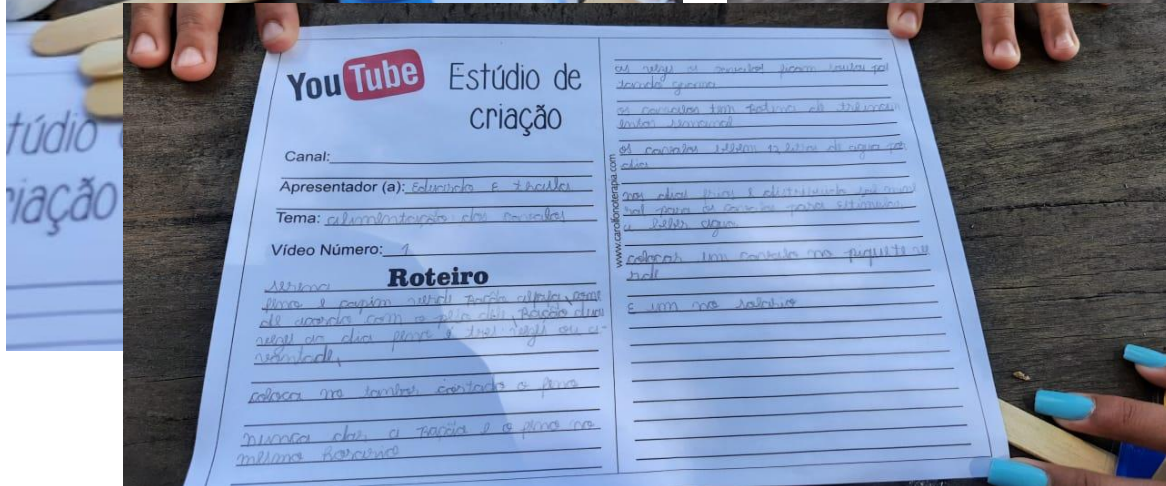 túdio
riação
YouTube
Estúdio de
criação
Canal:
Apresentador (a): Eduardo E thalla
Tema: alimentação dos cavalos
Vídeo Número: 1
Roteiro
serena
feno e capim verde ração alfafa, come
de acordo com o peso dele, Ração duas
vezes ao dia feno é tres vezes ou a-
vontade,
coloca no tambor cortado o feno
nunca dar, a Ração e o feno no
mesmo horario
as vezes os cavalos ficam soutos pas
tando grama
os cavalos tem Rotina de treinam
entos semanal
os cavalos bebem 12 litros de agua por
dia
nos dias frios é distribuido sal mine
ral para os cavalos para estimular
a beber agua
colocar um cavalo no piquete ve
rde
E um no
www.carolfonoterapia.com